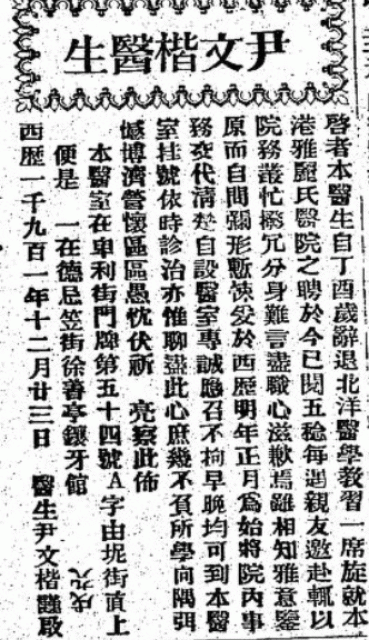 尹文楷醫生
啓者本醫生自丁酉歲辭退北洋醫學教習一席旋就本
港雅麗氏醫院之聘於今已閱五稔每遇親友邀赴輒以
院務叢忙撥冗分身難言盡職心滋歉焉雖相知雅意鑒
原而自問彌形慚悚爰於西歷明年正月為始將院內事
務交代清楚自設醫室專誠應召不拘早晚均可到本醫
室挂號依時診治亦惟聊盡此心庶幾不負所學向隅弭
憾博濟管懷區區愚忱伏祈 亮察此佈
本醫室在卑利街門牌第五十四號A字由坭街直上
便是 一在德忌笠街徐善亭鑲牙館 戌九
西歷一千九百一年十二月廿三日 醫生尹文楷謹啟